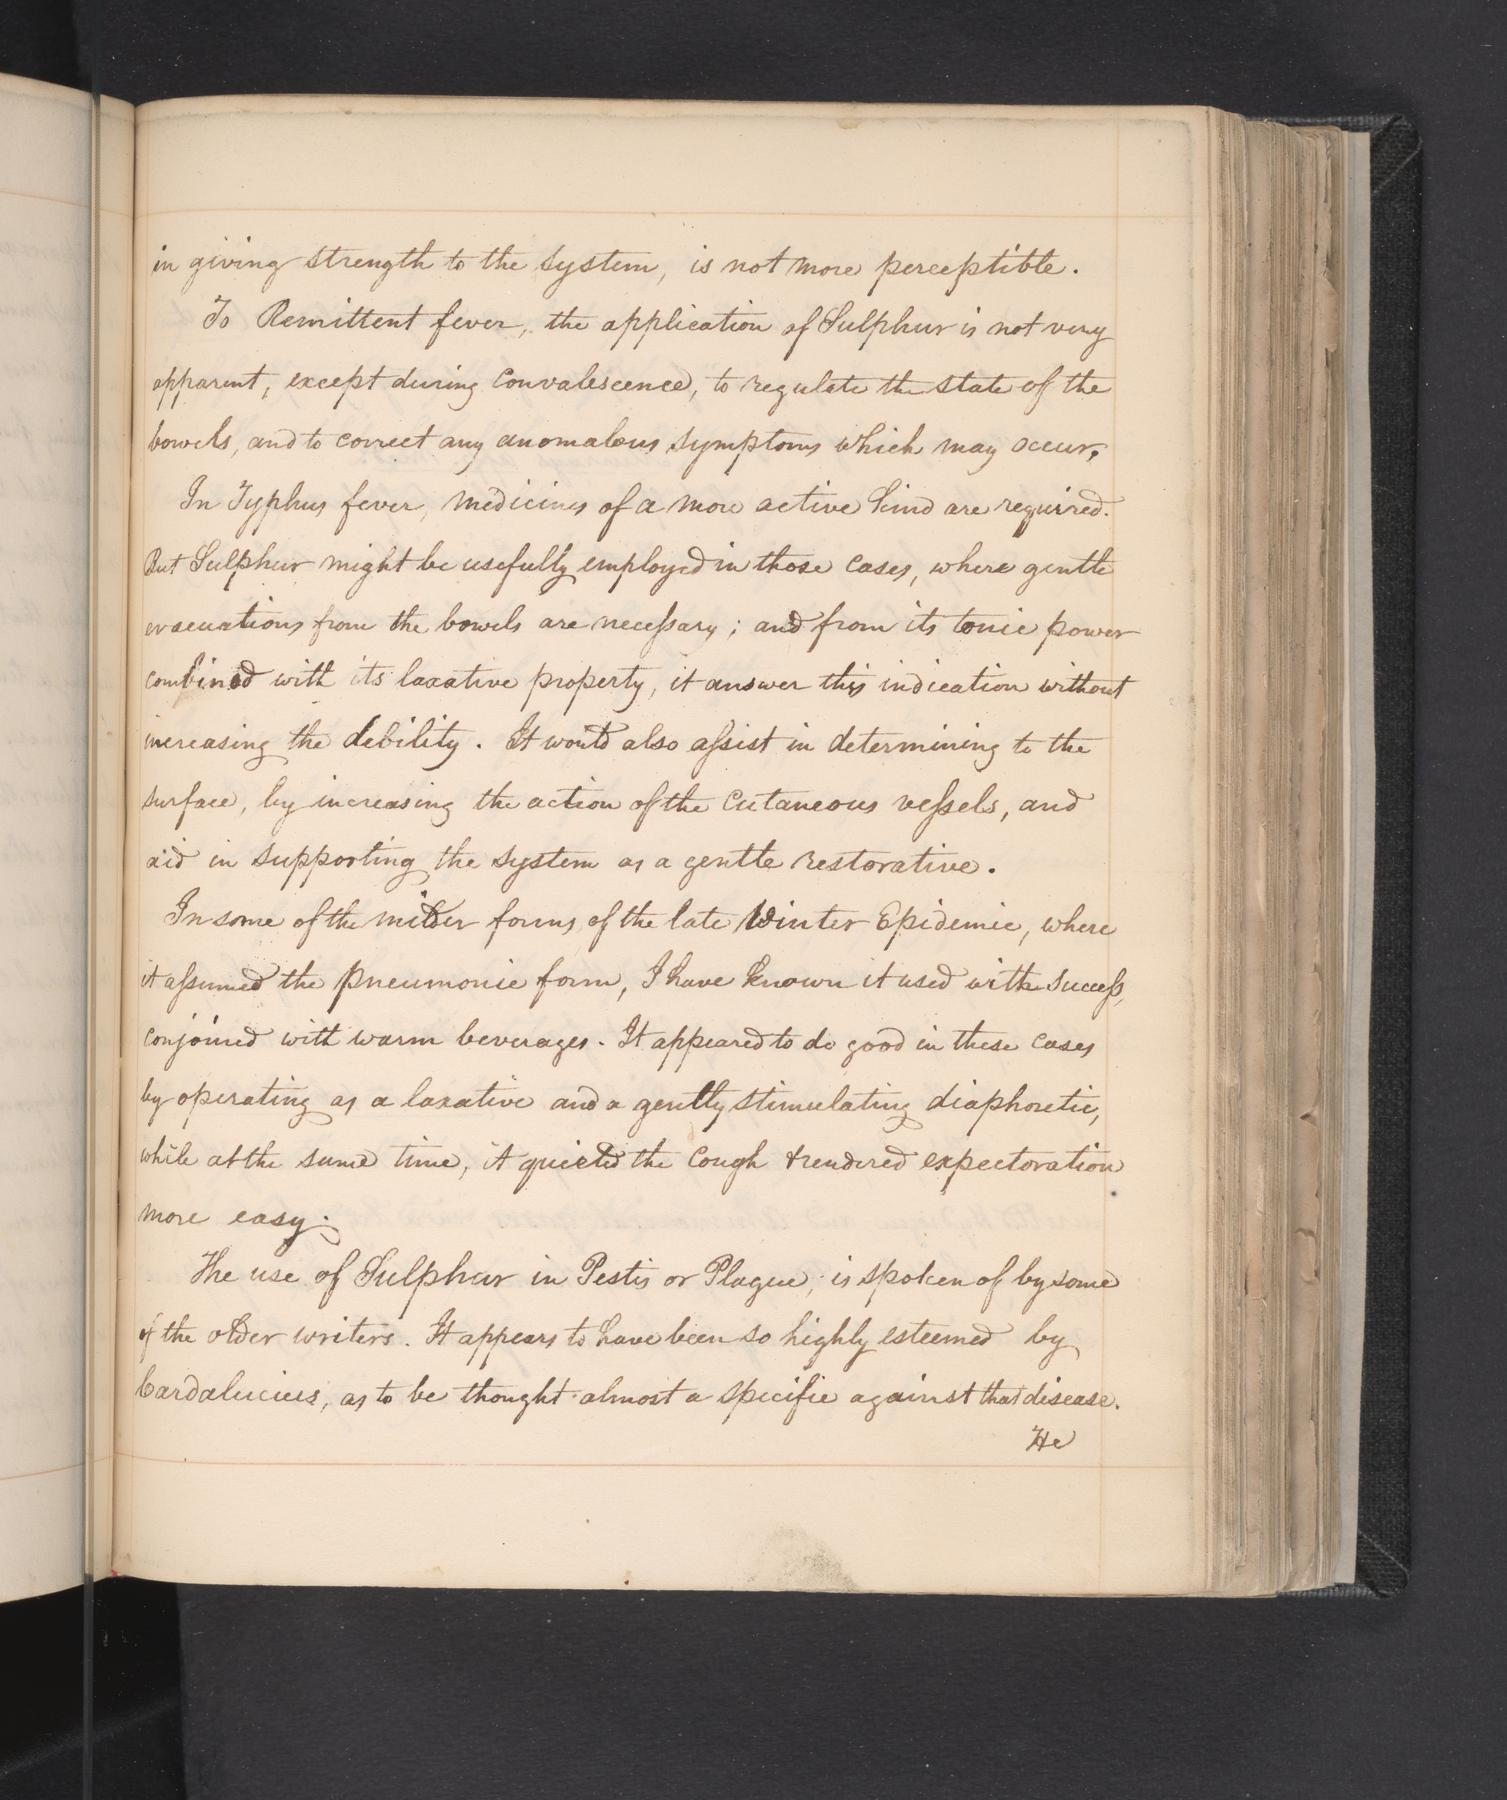 in giving strength to the system, is not more perceptible.
To Remittent fever, the application of Sulphur is not very
apparent, except during convalescence, to regulate the state of the
bowels, and to correct any anomalous symptoms which may occur.
In Typhus fever, medicines of a more active kind are required.
But Sulphur might be usefully employed in those cases, where gentle
evacuations from the bowels are necessary; and from its tonic power
combined with its laxative property, it answer this indication without
increasing the debility. It would also assist in determining to the
surface, by increasing the action of the cutaneous vessels, and
aid in supporting the system as a gentle restorative.
In some of the milder forms of the late Winter Epidemic, where
it assumed the pneumonic form, I have known it used with success,
conjoined with warm beverages. It appeared to do good in these cases
by operating as a laxative and a gently stimulating diaphoretic,
while at the same time, it quieted the cough & rendered expectoration
more easy.
The use of Sulphur in Pestis or Plague, is spoken of by some
of the older writers. It appears to have been so highly esteemed by
Cardalucius, as to be thought almost a specific against that disease.
He